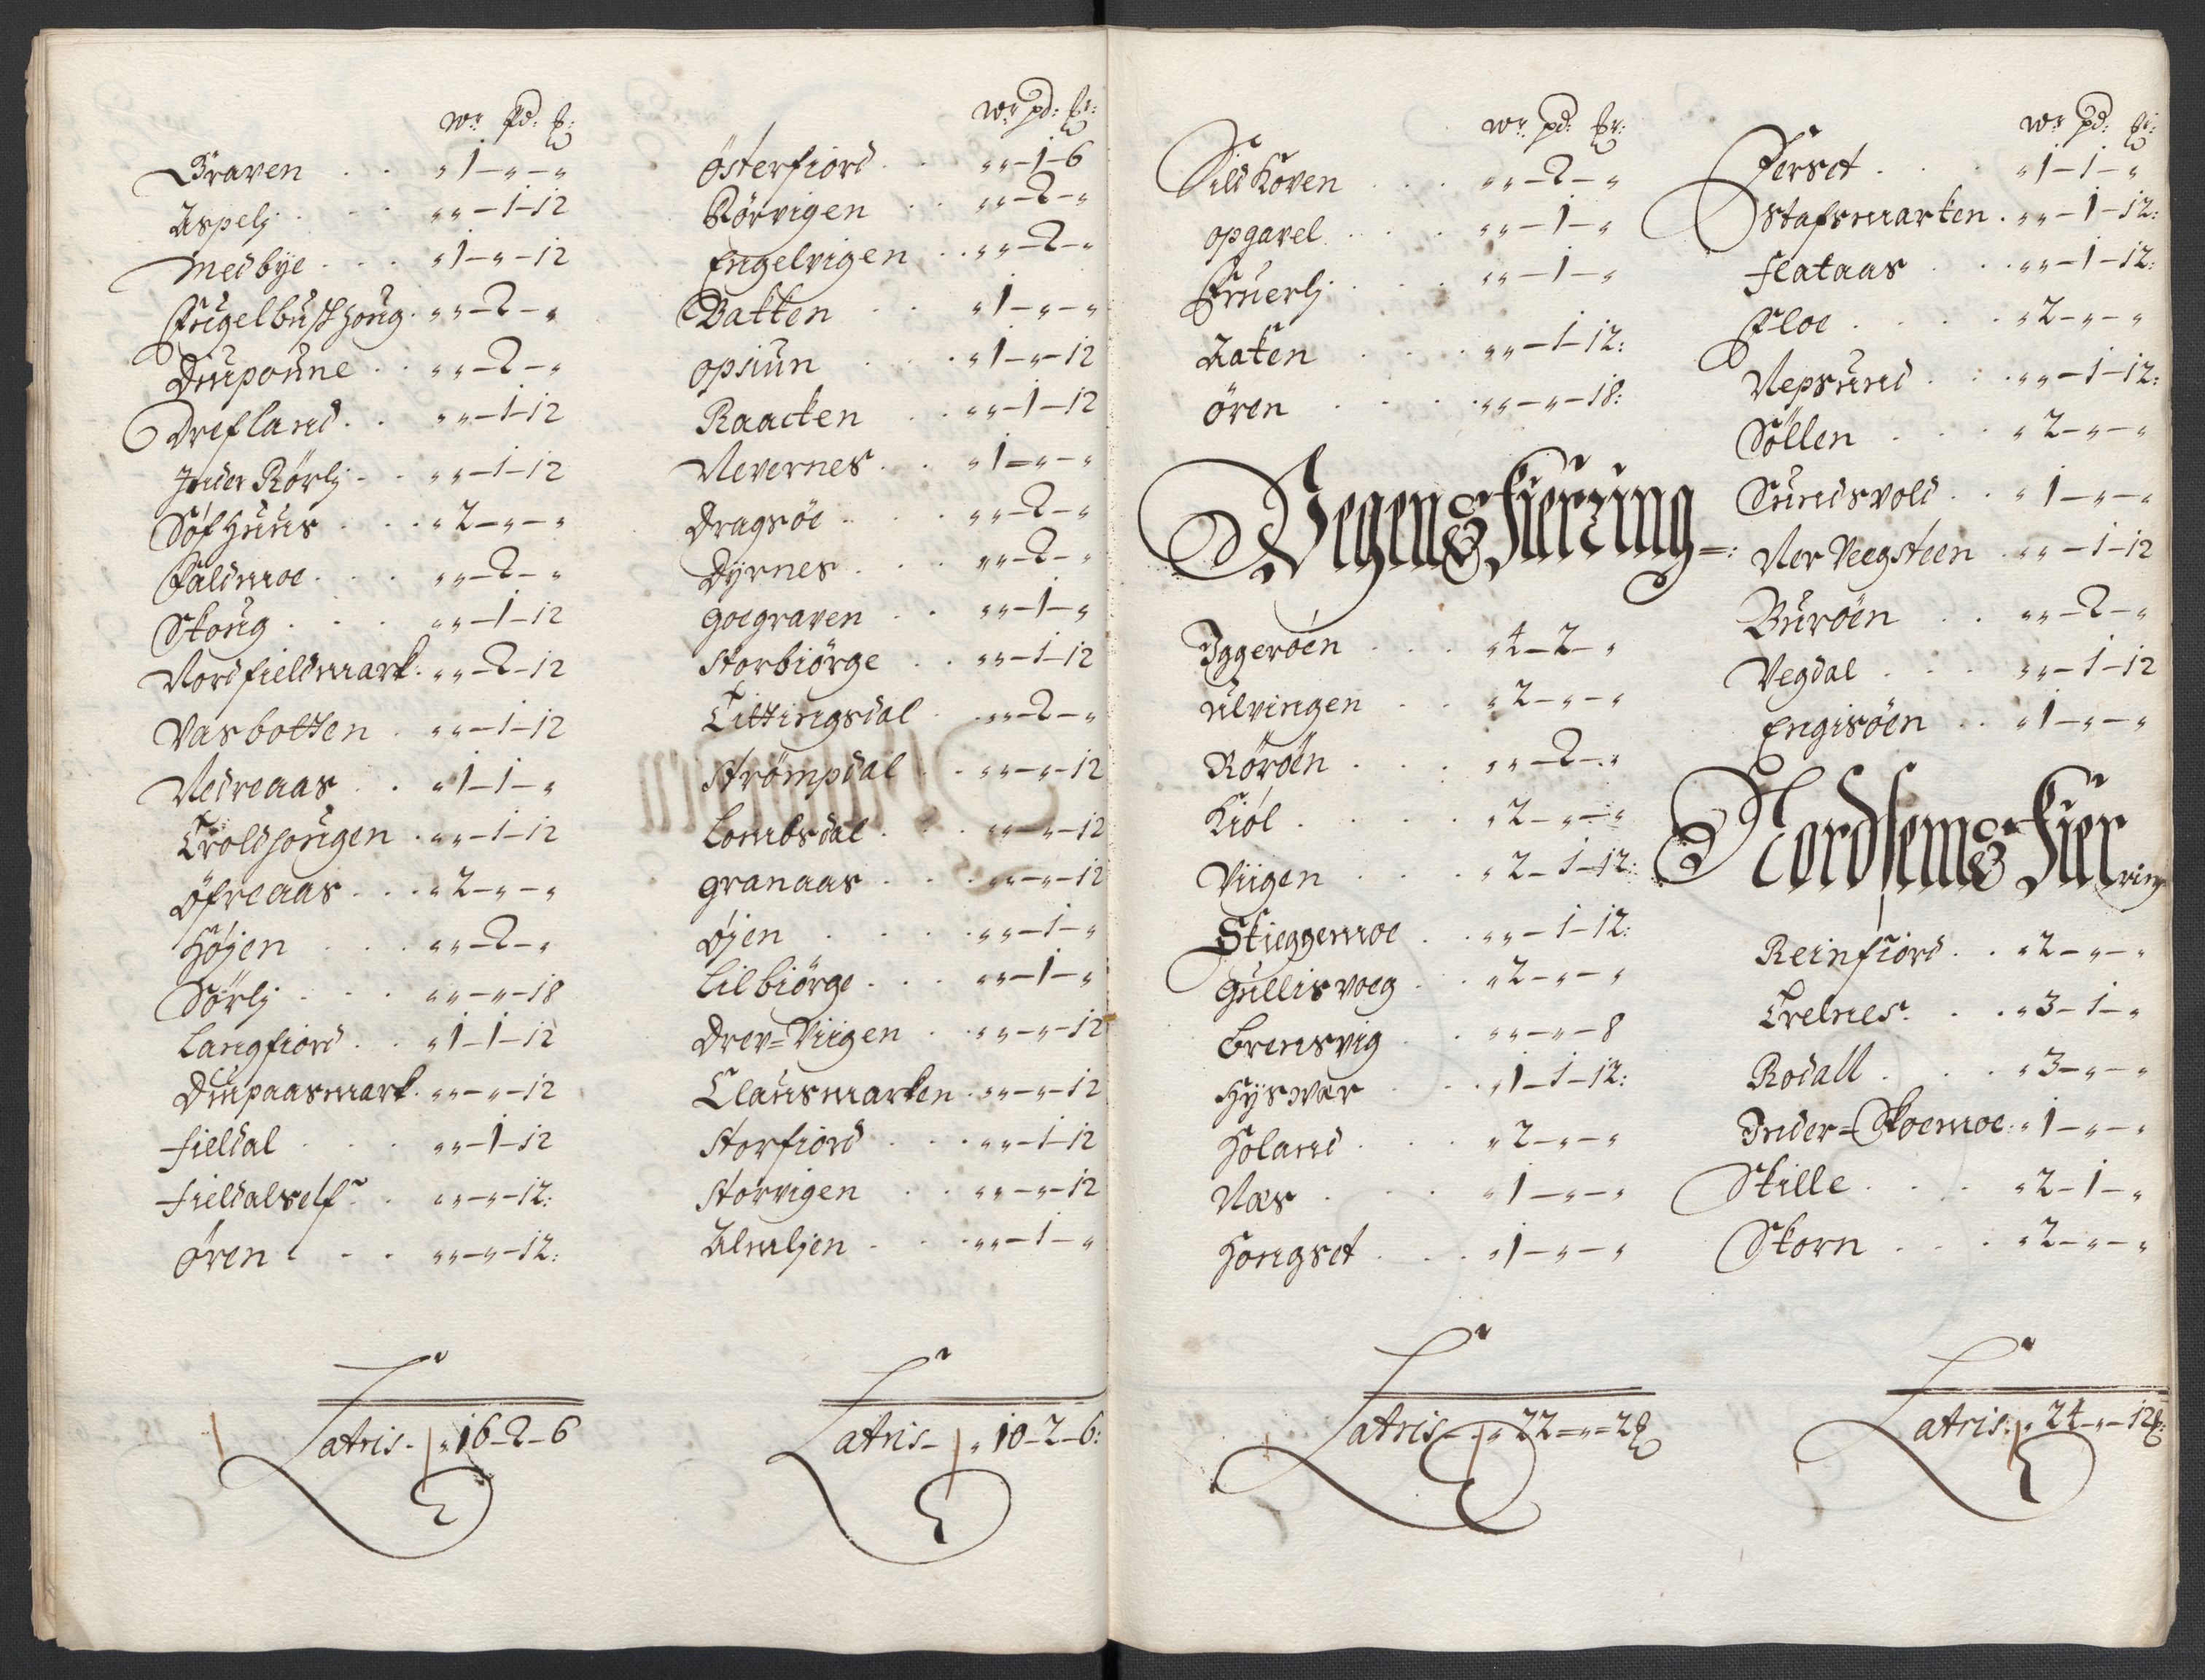 wr pd: ℔:
Graven . . „ 1 – „ – „
Aspelj . . . „ „ – 1 – 12
Medbÿe . . . „ 1 – „ – 12
Fugelbusthoug . „ „ – 2 – „
Drupoüne . . „ „ – 2 – „
Drefland . . „ „ – 1 – 12
Inder Rörlj . . „ „ – 1 – 12
Söfhuus . . . „ 2 – „ – „
Faldmoe . . . „ „ – 2 – „
Skoug . . . „ „ – 1 – 12
Nordfieldmark . „ „ – 2 – 12
Vasbotten . „ „ – 1 – 12
Nedreaas . . „ 1 – 1 – „
Troldhougen . „ „ – 1 – 12
Öfreaas . . . „ 2 – „ – „
Höjen . . . „ „ – 2 – „
Sörlj . . . „ „ – „ – 18
Langfiord . . „ 1 – 1 – 12
Drupaasmark . „ „ – „ – 12
Fieldal . . . „ „ – 1 – 12
Fieldalself . . „ „ – „ – 12:
Ören . . . „ „ – „ – 12:
Latris – „ 16 – 2 – 6
wr pd: ℔:
Österfiord . . „ „ – 1 – 6
Rörvigen . . „ „ – 2 – „
Engelvigen . . „ „ – 2 – „
Batten . . „ 1 – „ – „
Opsiun . . . „ 1 – „ – 12
Raacken . . „ „ – 1 – 12
Nevernes . . „ 1 – „ – „
Dragsöe . . . „ „ – 2 – „
Dÿrnes . . . „ „ – 2 – „
Goegraven . . „ „ – 1 – „
Storbiörge . . „ „ – 1 – 12
Tittingsdal . . „ „ – 2 – „
Strömpdal . . „ „ – „ – 12
Lombsdal . . . „ „ – „ – 12
Granaas . . . „ „ – „ – 12
Öjen . . . . „ „ – 1 – „
Lilbiörge . . . „ „ – 1 – „
Drev=Viigen . . „ „ – „ – 12
Clausmarken . „ „ – „ – 12
Storfiord . . . „ „ – 1 – 12
Storvigen . . „ „ – „ – 12
Almljen . . . „ „ – 1 – „
Latris – „ 10 – 2 – 6:
wr pd: ℔:
Sildhoven . . . „ „ – 2 – „
Opgavel . . . „ „ – 1 – „
Fruerlj . . . „ „ – 1 – „
Aaken . . . „ „ – 1 – 12:
Ören . . . „ „ – „ – 18:
Vegens Fierring =:
Iggeröen . . . „ 4 – 2 – „
Ulvingen . . „ 2 – „ – „
Röröen . . . „ „ – 2 – „
Kiöl . . . . „ 2 – „ – „
Viigen . . . „ 2 – 1 – 12:
Skieggemoe . . „ „ – 1 – 12:
Gullisvoeg . . „ 2 – „ – „
Bremsvig . . „ „ – „ – 8
Hÿsvær . . . „ 1 – 1 – 12:
Holand . . . „ 2 – „ – „
Næs . . . „ 1 – „ – „
Hongset . . . „ 1 – „ – „
Latris – „ 22 = „ = 2 ℔
wr pd: ℔:
Ferset . . . „ 1 – 1 – „
Stafsmarken . „ „ – 1 – 12:
Flataas . . „ „ – 1 – 12:
Floe . . . . „ 2 – „ – „
Nepsund . . . „ „ – 1 – 12:
Söllen . . . „ 2 – „ – „
Sundsvold . . „ 1 – „ – „
Nor Veegsteen . „ „ – 1 – 12
Buröen . . „ „ – 2 – „
Vegdal . . . „ „ – 1 – 12
Engisöen . . „ 1 – „ – „
Nordsems Fierring
Reinfiord . . „ 2 – „ – „
Trelnes . . „ 3 – 1 – „
Rodall . . . „ 3 – „ – „
Inder=Skoemoe: „ 1 – „ – „
Skille . . . „ 2 – 1 – „
Skorn . . . „ 2 – „ – „
Latris: „ 24 – „ – 12 ℔: